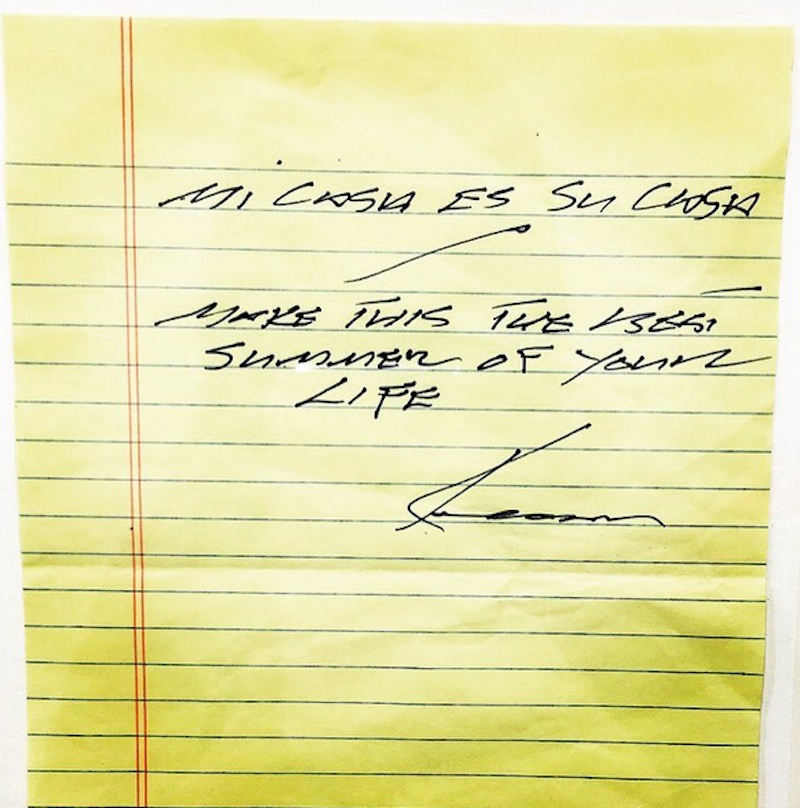 MI CASA ES SU CASA
MAKE THIS THE BEST
SUMMER OF YOUR
LIFE